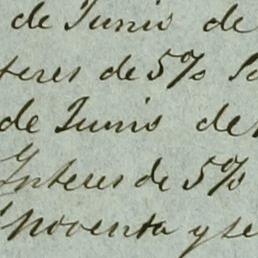 de Junio de
teres de 5%
de Junio de
Interes de 5%
noventa y se